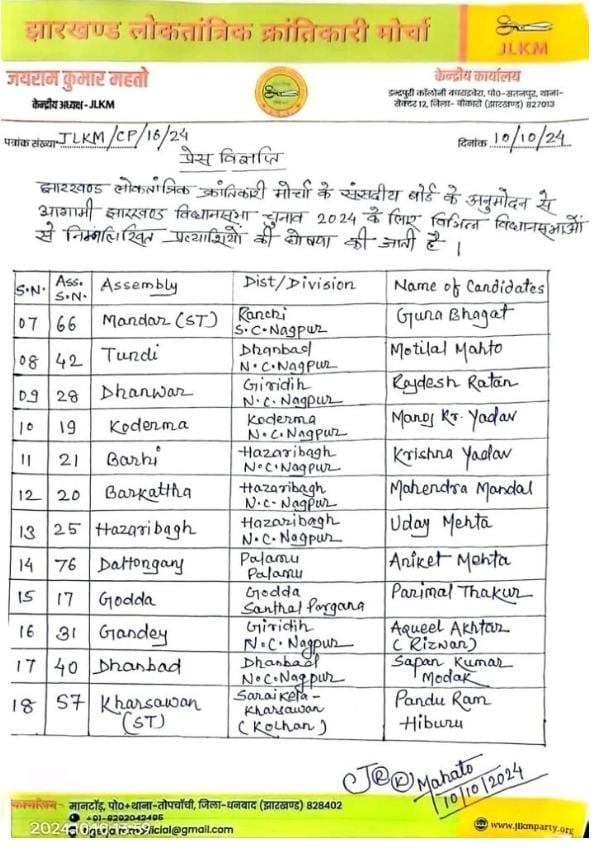 झारखण्ड लोकतांत्रिक क्रांतिकारी मोर्चा
JLKM
जयराम कुमार महतो
केन्द्रीय अध्यक्ष -JLKM
केन्द्रीय कार्यालय
इन्द्रपुरी कॉलोनी बाधाडबेरा, पो०-सतनपुर, थाना-
सेक्टर 12, जिला- बोकारो (झारखण्ड) 827013
पत्रांक संख्या JLKM/CP/16/24
दिनांक 10/10/24
प्रेस विज्ञप्ति
झारखण्ड लोकतांत्रिक क्रांतिकारी मोर्चा के संसदीय बोर्ड के अनुमोदन से
आगामी झारखण्ड विधानसभा चुनाव 2024 के लिए विभिन्न विधानसभाओं
से निम्नलिखित प्रत्याशियों की घोषणा की जाती है ।
S.N. Ass. S.N. Assembly Dist/Division Name of Candidates
07 66 Mandar (ST) Ranchi S.C.Nagpur Guna Bhagat
08 42 Tundi Dhanbad N.C.Nagpur Motilal Mahto
09 28 Dhanwar Giridih N.C.Nagpur Rajdesh Ratan
10 19 Koderma Koderma N.C.Nagpur Manoj Kr. Yadav
11 21 Barhi Hazaribagh N.C.Nagpur Krishna Yadav
12 20 Barkattha Hazaribagh N.C-Nagpur Mahendra Mandal
13 25 Hazaribagh Hazaribagh N.C.Nagpur Uday Mehta
14 76 Daltongang Palamu Palamu Aniket Mehta
15 17 Godda Godda Santhal Pargana Parimal Thakur
16 31 Gandey Giridih N.C.Nagpur Aqueel Akhtar (Rizwan)
17 40 Dhanbad Dhanbad N.C.Nagpur Sapan Kumar Modak
18 57 Kharsawan (ST) Saraikela- Kharsawan (Kolhan) Pandu Ram Hiburu
Mahato
10/10/2024
कार्यालय- मानटाँड़, पो०+थाना-तोपचाँची, जिला-धनबाद (झारखण्ड) 828402
www.jlkmparty.org